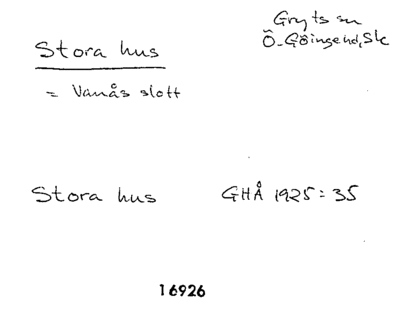 Gryts sn
Ö. Göinge hd, Sk
Stora hus
= Vanås slott
Stora hus GHÅ 1925:35
16926